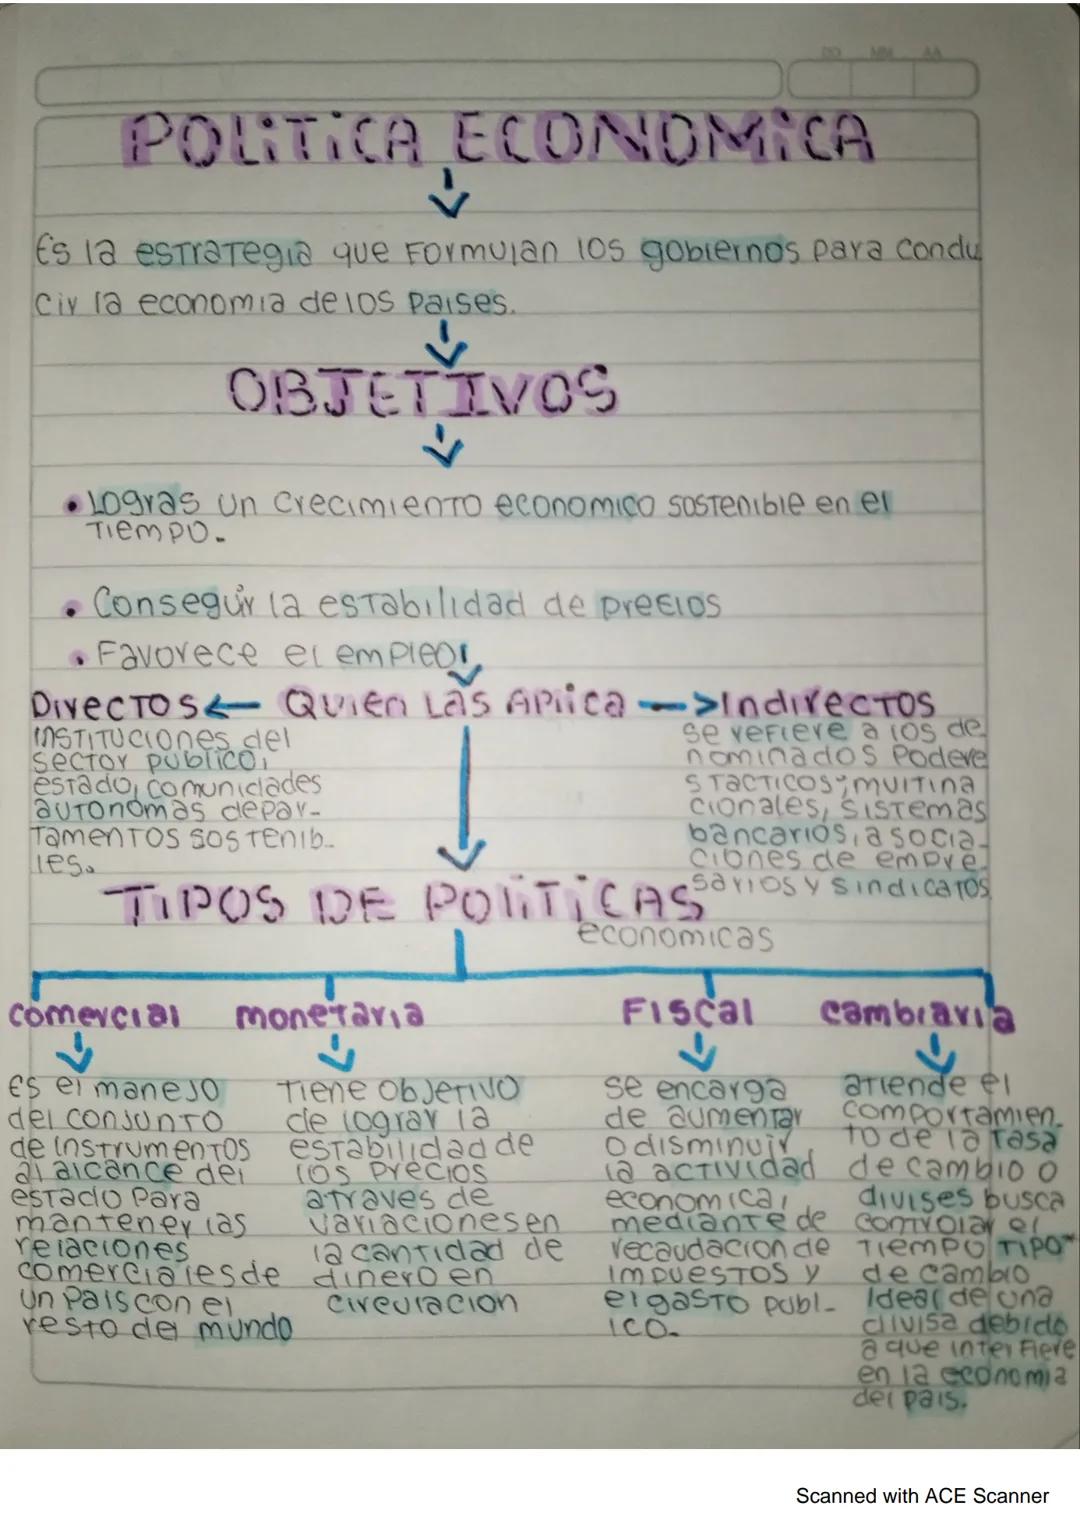 DD MM AA
POLITICA ECONOMICA
Es la estrategia que Formulan los gobiernos para condu
cir la economia de los paises.
OBJETIVOS
• Logras un crecimiento economico sostenible en el
Tiempo.
• Conseguir la estabilidad de precios
• Favorece el empleo
Directos <— Quien Las Aplica —> Indirectos
instituciones del
sector publico,
estado, comunidades
autonomas depar-
tamentos sostenib-
les.
se refiere a los de
nominados podere
s tacticos; multina
cionales, sistemas
bancarios, asocia-
ciones de empre-
sarios y sindicatos
TIPOS DE POLITICAS
economicas
comercial monetaria Fiscal cambiaria
Es el manejo
del conjunto
de instrumentos
al alcance del
estado para
mantener las
relaciones
comerciales de
un pais con el
resto del mundo
Tiene objetivo
de lograr la
estabilidad de
los precios
atraves de
variaciones en
la cantidad de
dinero en
circulacion
se encarga
de aumentar
o disminuir
la actividad
economica,
mediante de
recaudacion de
impuestos y
el gasto publ-
ico.
atiende el
comportamien-
to de la tasa
de cambio o
divises busca
controlar el
tiempo tipo
de cambio
ideal de una
divisa debido
a que interfiere
en la economia
del pais.
Scanned with ACE Scanner